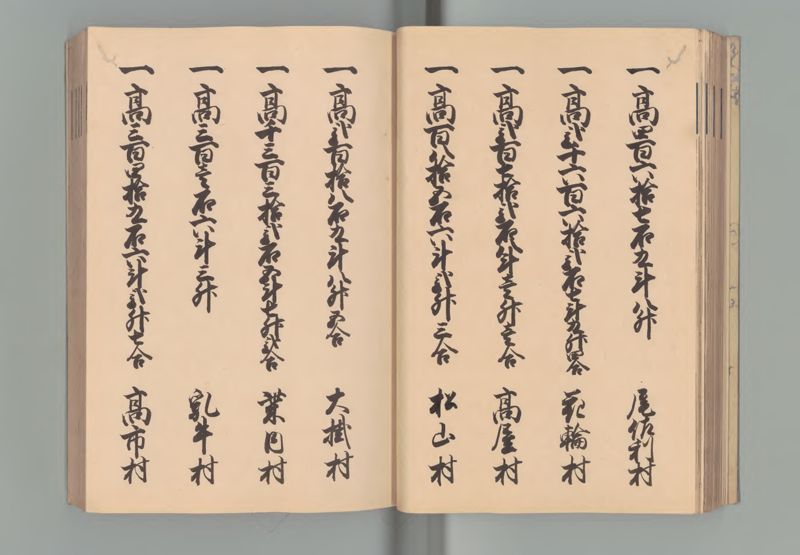 一高四百六拾七石九斗八升 尾佐利村
一高弐千六百六拾弐石七斗九升四合 花輪村
一高弐百七拾弐石八斗壱升壱合 高屋村
一高百八拾五石六斗弐升三合 松山村
一高弐百拾八石九斗八升五合 大掛村
一高千三百三拾弐石五斗七升弐合 葉月村
一高三百壱石六斗三升 乳牛村
一高三百四拾九石六斗弐升七合 高市村